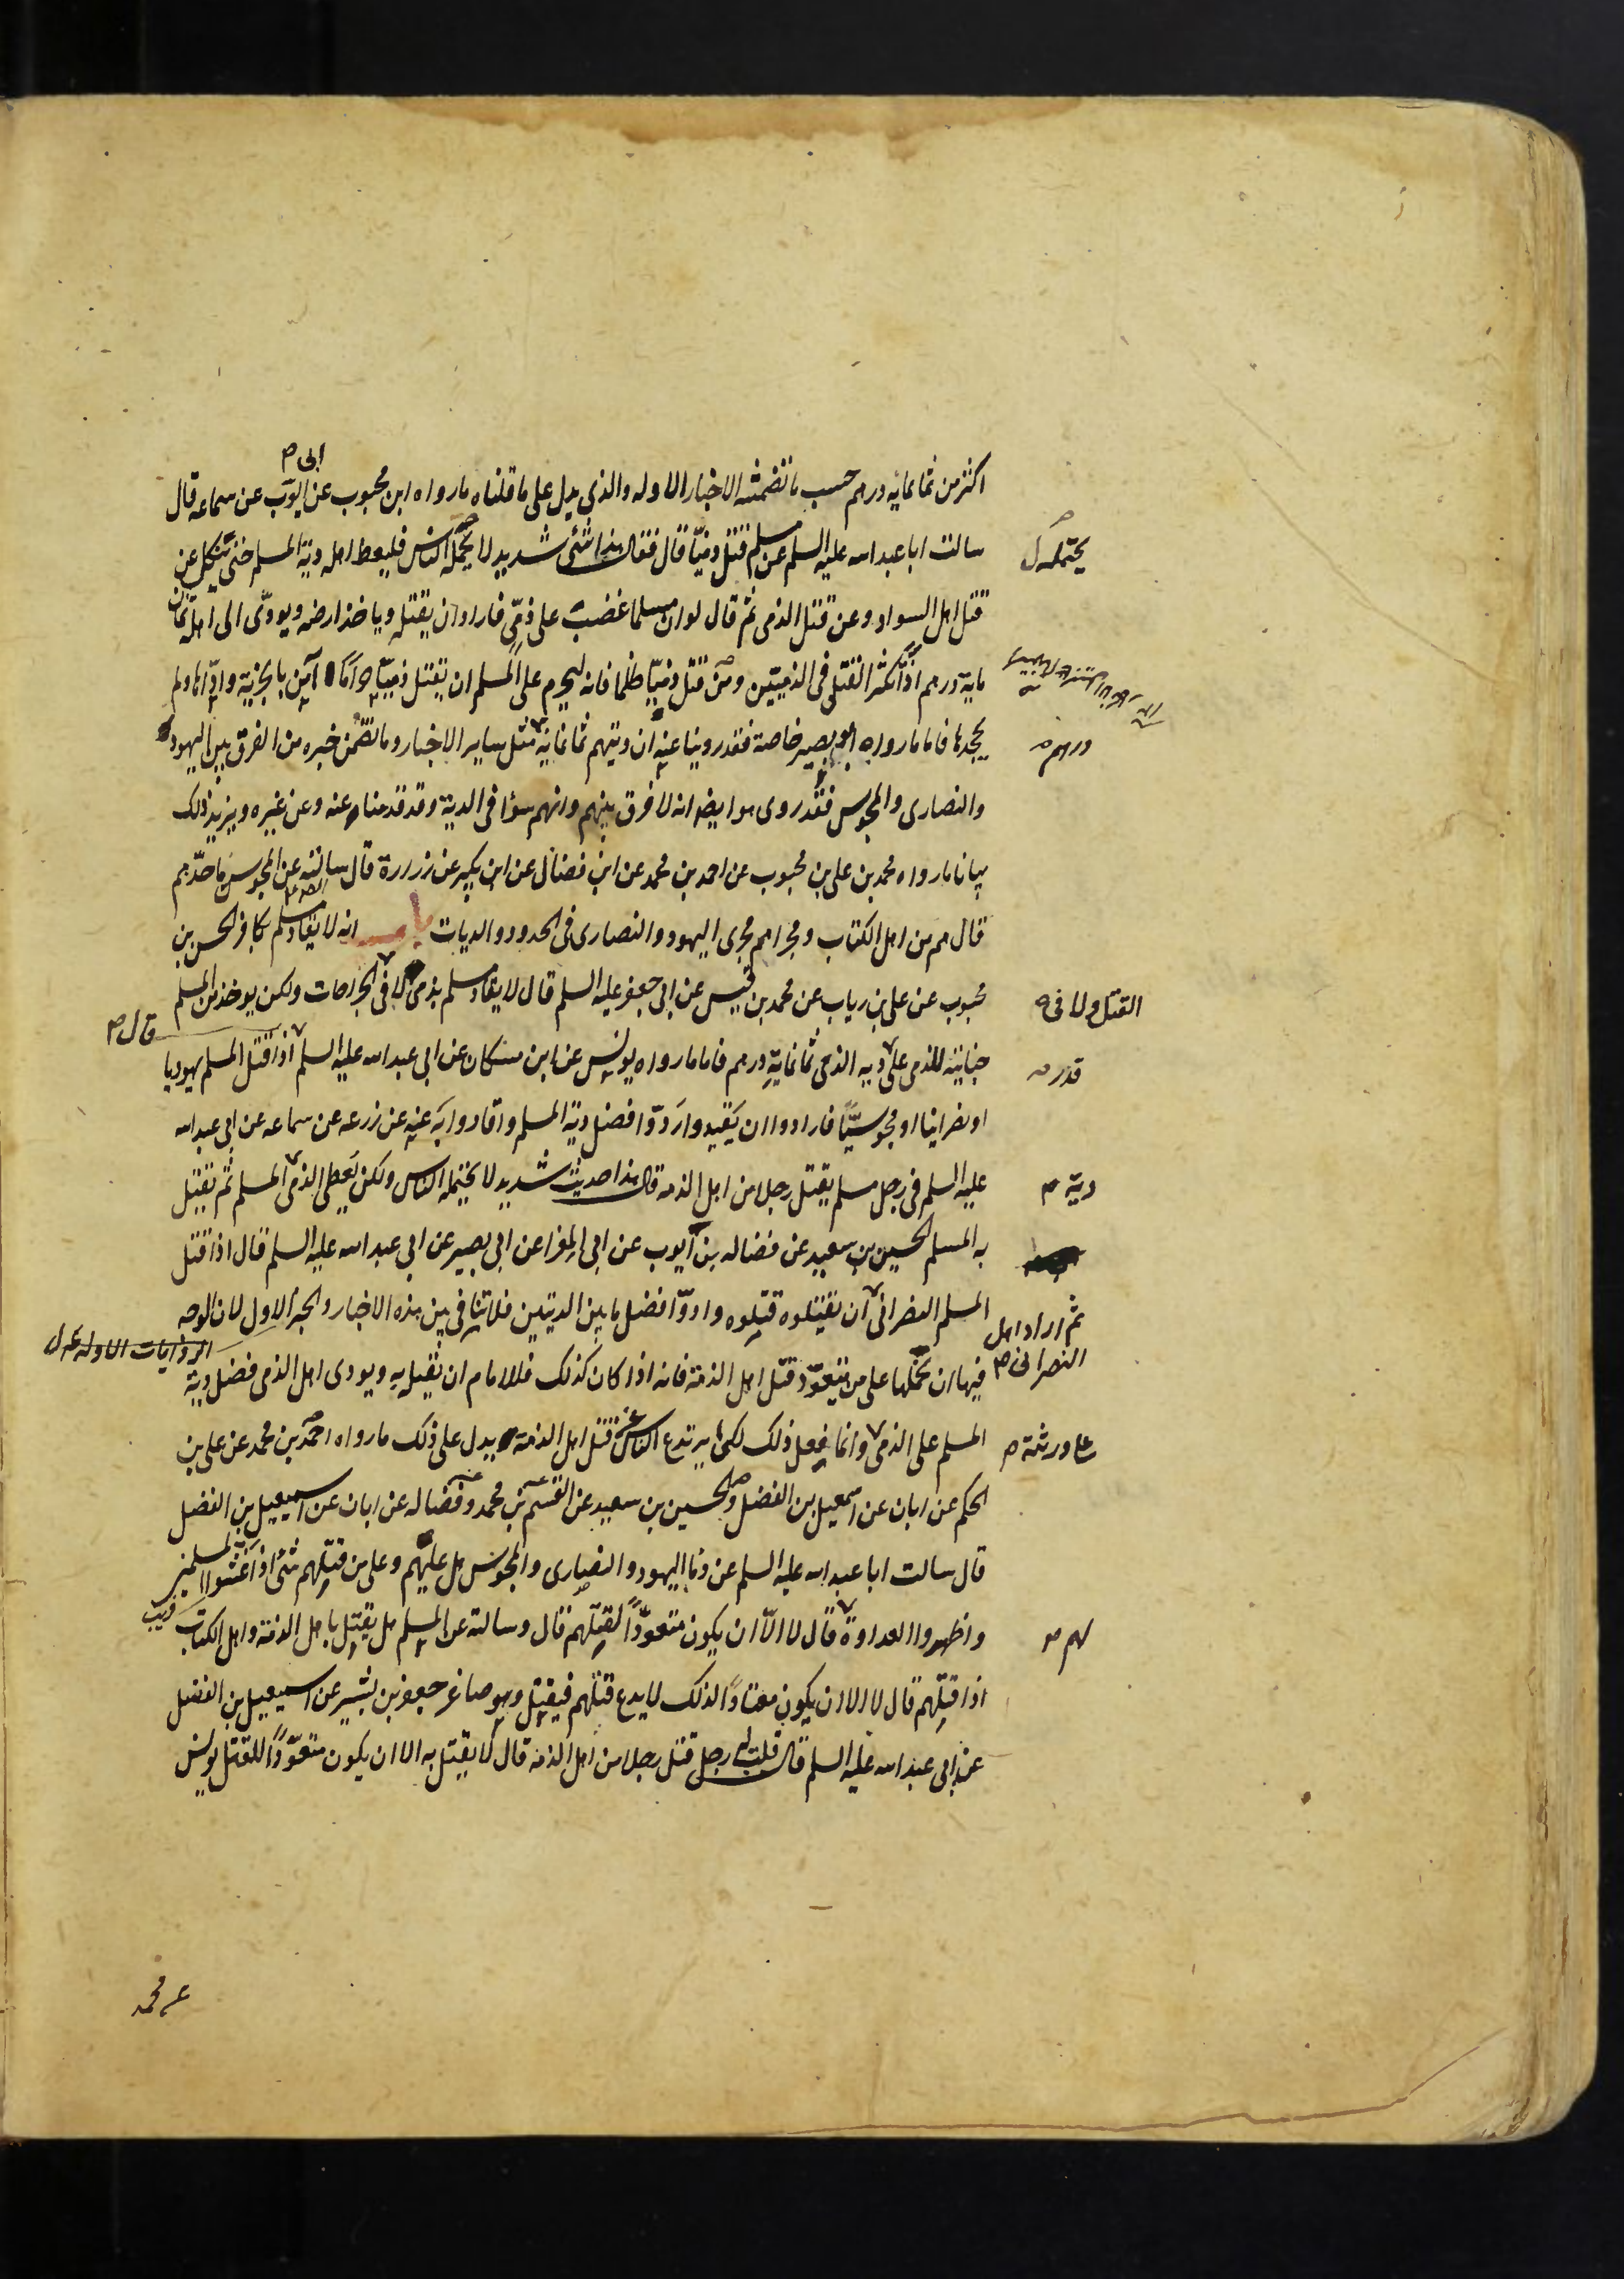 ابى ص
اكثر من ثمانمائه درهم حسب ما تضمنته الاخبار الاوله والذى يدل على ما قلناه ما رواه ابن محبوب عن ايوب عن سماعه قال
سالت ابا عبد الله عليه السلم عن مسلم قتل ذميا قال فقال هذا شئ شديد لا يحتمله الناس فليعط اهله دية المسلم حتى ينكل عن
يحتمله ل
قتل اهل السواد وعن قتل الذمى ثم قال لو ان مسلما غضب على ذمى فاراد ان يقتله وياخذ ارضه ويودى الى اهله ثمان
ماية درهم اذا يكثر القتل فى الذميين ومن قتل ذميا ظلما فانه ليحرم على المسلم ان يقتل ذميا حراما ما آمن بالجزية واداها ولم
يجحدها فاما ما رواه ابو بصير خاصة فقد روينا عنه ان ديتهم ثمانماية مثل ساير الاخبار وما تضمن خبره من الفرق بين اليهود
درهم ص
والنصارى والمجوس فقد روى هو ايضا انه لا فرق بينهم وانهم سواء فى الدية وقد قدمناه عنه وعن غيره ويزيد ذلك
بيانا ما رواه محمد بن على بن محبوب عن احمد بن محمد عن ابن فضال عن ابن بكير عن زرارة قال سالته عن المجوس ما حدهم
قال هم من اهل الكتاب ومجراهم مجرى اليهود والنصارى فى الحدود والديات باب انه لا يقاد مسلم بكافر الحسن بن
محبوب عن على بن رياب عن محمد بن قيس عن ابى جعفر عليه السلم قال لا يقاد مسلم بذمى لا فى الجراحات ولكن يوخذ من المسلم
القتل ولا فى ص
جنايته للذمى على دية الذمى ثمانماية درهم فاما ما رواه يونس عن ابن مسكان عن ابى عبد الله عليه السلم اذا قتل المسلم يهوديا
قدر ص
قال ص
او نصرانيا او مجوسيا فارادوا ان يقيدوا ردوا فضل دية المسلم واقادوا به عنه عن زرعه عن سماعه عن ابى عبد الله
عليه السلم فى رجل مسلم يقتل رجلا من اهل الذمه قال هذا حديث شديد لا يحتمله الناس ولكن يعطى الذمى المسلم ثم يقتل
دية ص
به المسلم الحسين بن سعيد عن فضاله بن ايوب عن ابى المغرا عن ابى بصير عن ابى عبد الله عليه السلم قال اذا قتل
المسلم النصرانى ان يقتلوه قتلوه وادوا فضل ما بين الديتين فلا تنافى بين هذه الاخبار والخبر الاول لان الوجه
ثم اراد اهل
النصرانى ص
فيها ان نحملها على من يتعود قتل اهل الذمة فانه اذا كان كذلك فللامام ان يقتله به ويودى اهل الذمى فضل دية
الروايات الاوله ل
المسلم على الذمى وانما يفعل ذلك لكى يرتدع الناس عن قتل اهل الذمة يدل على ذلك ما رواه احمد بن محمد عن على بن
على ورثته ص
الحكم عن ابان عن اسمعيل بن الفضل والحسين بن سعيد عن القسم بن محمد وفضاله عن ابان عن اسمعيل بن الفضل
قال سالت ابا عبد الله عليه السلم عن دماء اليهود والنصارى والمجوس هل عليهم وعلى من قتلهم شئ اذا غشوا المسلمين
واظهروا العداوة قال لا الا ان يكون متعودا لقتلهم قال وسالته عن المسلم هل يقتل باهل الذمة واهل الكتاب
لهم ص
اذا قتلهم قال لا الا ان يكون معتادا لذلك لا يدع قتلهم فيقتل وهو صاغر جعفر بن بشير عن اسمعيل بن الفضل
عن ابى عبد الله عليه السلم قال قلت له رجل قتل رجلا من اهل الذمه قال لا يقتل به الا ان يكون متعودا للقتل يونس
عن محمد